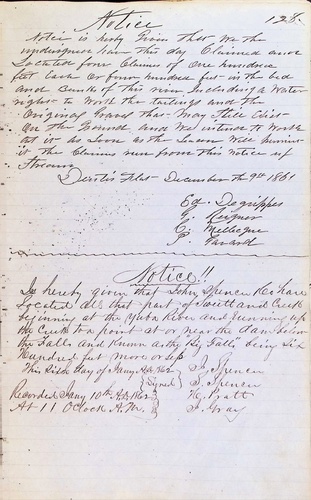 128.
Notice
Notice is herby Given that We the
undersigned have this day Claimed and
Located four Claimes of One hundred
feet Each Or four hundred feet in the bed
and Banks of this river Including a Water
right to Work the tailings and the
Original Gravel that May Still Exist
On the Ground and We intend to Work
it as Soon as the Season Will permit
the Claims run from this Notice up
Stream
Flat December the 9th 1861
Eg.
G.
C.
P.
Notice!!
Is hereby given that John Spencer & Co have
Located all that part of Sweetland Creek
beginning at the Yuba River and running up
the Creek to a point at or near the dam below
the Falls and Known as the Big Falls being Six
Hundred feet more or less
This day of Jany A.D. 1862
Signed
J. Spencer
S. Spencer
H. Pratt
J. Gray
Recorded Jany 10th A.D. 1862
At 11 O'Clock A.M.